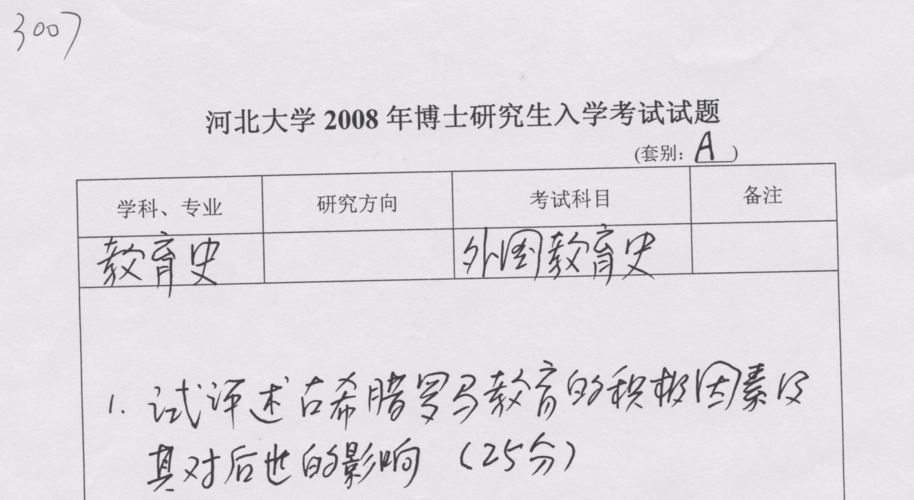 3007
河北大学 2008 年博士研究生入学考试试题
(套别: A )
学科、专业 研究方向 考试科目 备注
教育史 外国教育史
1. 试评述古希腊罗马教育的积极因素及
其对后世的影响 (25分)